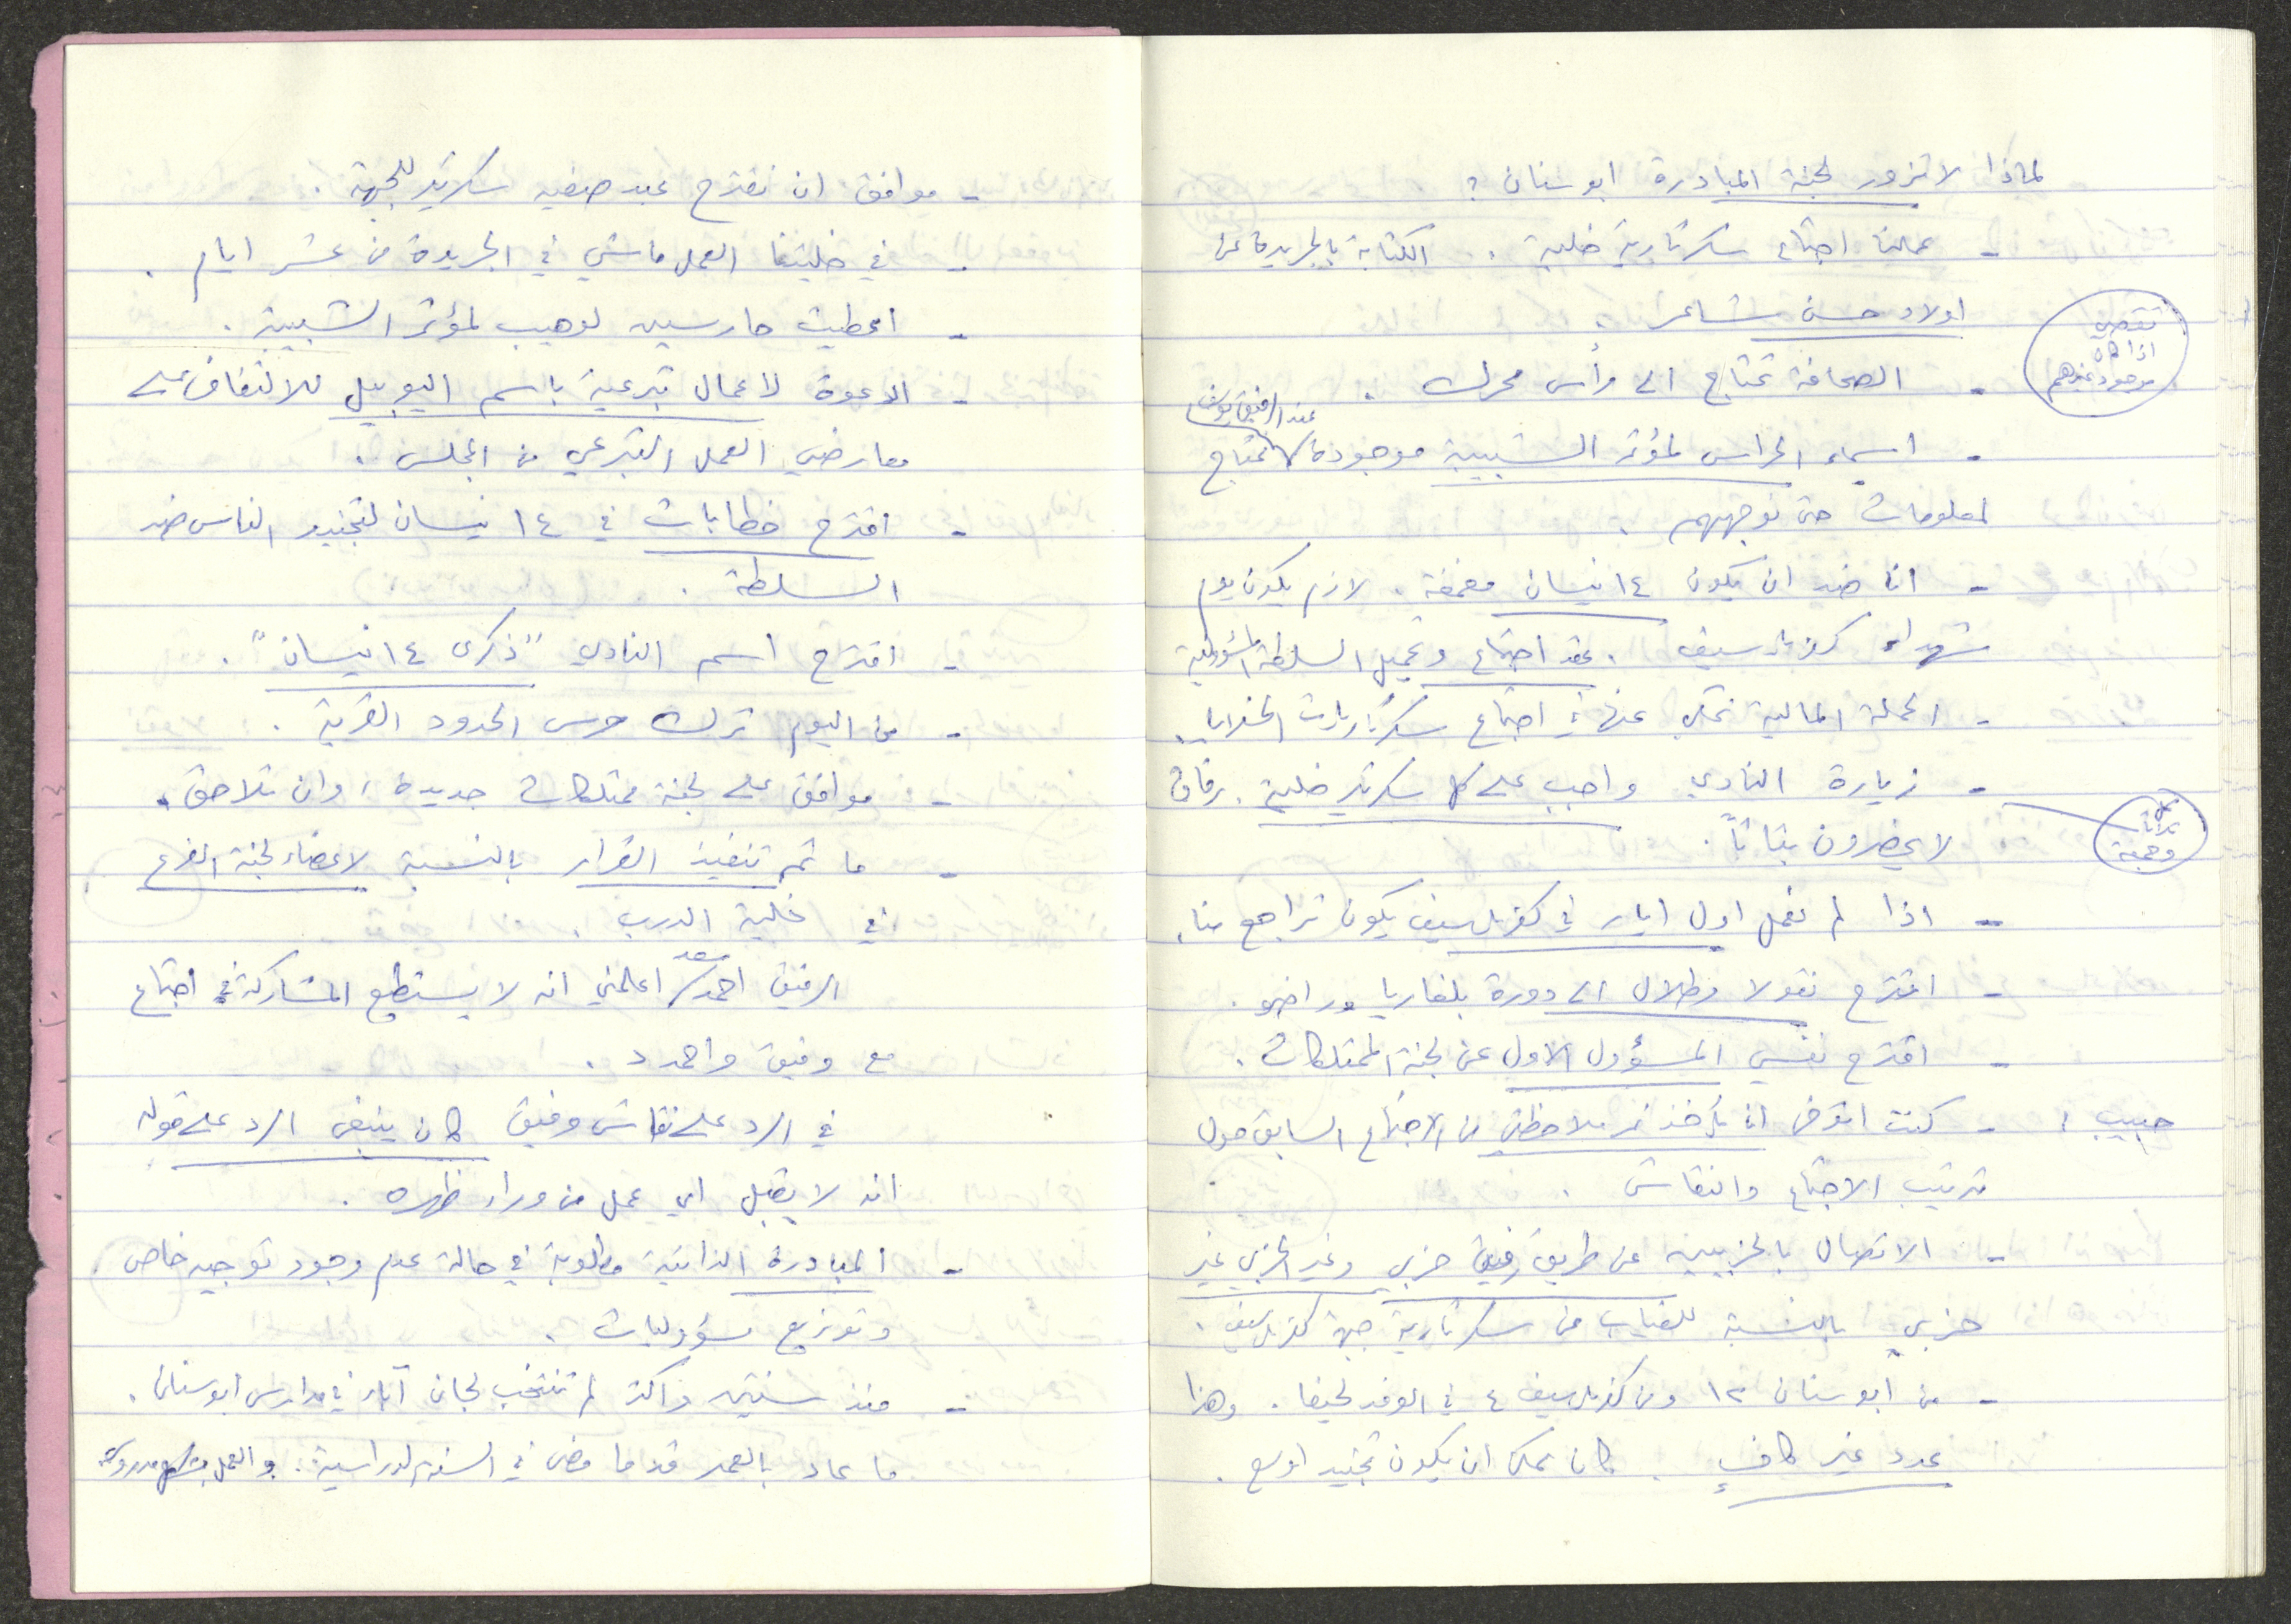 لماذا لا تزور لجنة المبادرة ابوسنان ؟
- عملنا اجتماع سكرتارية خلية . الكتابة بالجريدة عن
اولاد حسن شاعر .
نقص
اذا كان
موجود عندهم
- الصحافة تحتاج الى رأس محرك .
عند الرفيق
- اسماء الحراس لمؤتمر الشبيبة موجودة نحتاج
لمعلومات حتى نوجههم .
- انا ضد ان يكون ١٤ نيسان مغمغة . لازم يكون يوم
شهداء كفرياسيف . عقد اجتماع وتحميل السلطة المسؤولية
- الحملة المالية نحكي عنها في اجتماع سكرتاريات الخلايا .
- زيارة النادي واجب على كل سكرتير خلية . رفاق
لا يحضرون بتاتاً .
وهمية
- اذا لم نعمل اول ايار في كفرياسيف يكون تراجع منا .
- اقترح نقولا وطلال الى دورة بلغاريا وراضي .
- اقترح نفسي المسؤول الاول عن لجنة الممتلكات .
حبيب : - كنت اتوقع ان تأخذ نمر ملاحظتي من الاجتماع السابق حول
ترتيب الاجتماع والنقاش .
- الاتصال بالحزبيين عن طريق رفيق حزبي وغير الحزبي غير
حزبي بالنسبة للغياب من سكرتارية جبهة كفرياسيف .
- من ابوسنان ١٢ ومن كفرياسيف ٤ في الوفد لحيفا . وهذا
عدد غير كافٍ . كان ممكن ان يكون تجنيد اوسع .
- موافق ان نقترح عبد صفيه سكرتير للجبهة .
- في خليتنا العمل ماشي في الجريدة من عشر ايام .
- اعطيت حارسين لوهيب لمؤتمر الشبيبة .
- الدعوة لاعمال تبرعية باسم اليوبيل للالتفاف على
معارضي العمل التبرعي من المجلس .
- اقترح خطابات في ١٤ نيسان لتجنيد الناس ضد
السلطة .
- اقترح اسم النادي "ذكرى ١٤ نيسان" .
- من اليوم ترك حرس الحدود القرية .
- موافق على لجنة ممتلكات جديدة ، وان تلاحق .
- ما تم تنفيذ القرار بالنسبة لاعضاء لجنة الفرع
في خلية الدرب .
الرفيق احمد سعد اعلمني انه لا يستطيع المشاركة في اجتماع
مع وفيق واحمد د .
في الرد على نقاش وفيق كان ينبغي الرد على قوله
انه لا يقبل اي عمل من وراء ظهره .
- المبادرة الذاتية مطلوبة في حالة عدم وجود توجيه خاص
وتوزيع مسؤوليات .
- منذ سنتين واكثر لم تنتخب لجان آباء في مدارس ابوسنان .
ما عاد بالعمر قد ما مضى في السنة الدراسية . والعمل